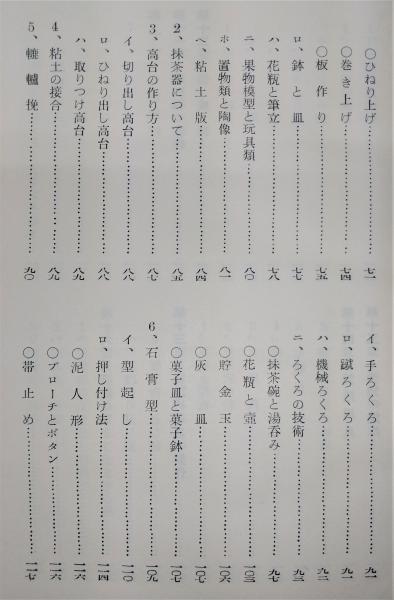 ○ひねり上げ……七一
○巻き上げ……七四
○板作り……七五
ロ、鉢と皿……七七
ハ、花瓶と筆立……七八
ニ、果物模型と玩具類……八〇
ホ、置物類と陶像……八一
ヘ、粘土版……八四
2、抹茶器について……八五
3、高台の作り方……八七
イ、切り出し高台……八八
ロ、ひねり出し高台……八八
ハ、取りつけ高台……八九
4、粘土の接合……八九
5、轆轤挽……九〇
イ、手ろくろ……九一
ロ、蹴ろくろ……九一
ハ、機械ろくろ……九二
ニ、ろくろの技術……九三
○抹茶碗と湯呑み……九七
○花瓶と壺……一〇三
○貯金玉……一〇六
○灰皿……一〇七
○菓子皿と菓子鉢……一〇七
6、石膏型……一〇九
イ、型起し……一一〇
ロ、押し付け法……一一四
○泥人形……一一六
○ブローチとボタン……一一六
○帯止め……一一七